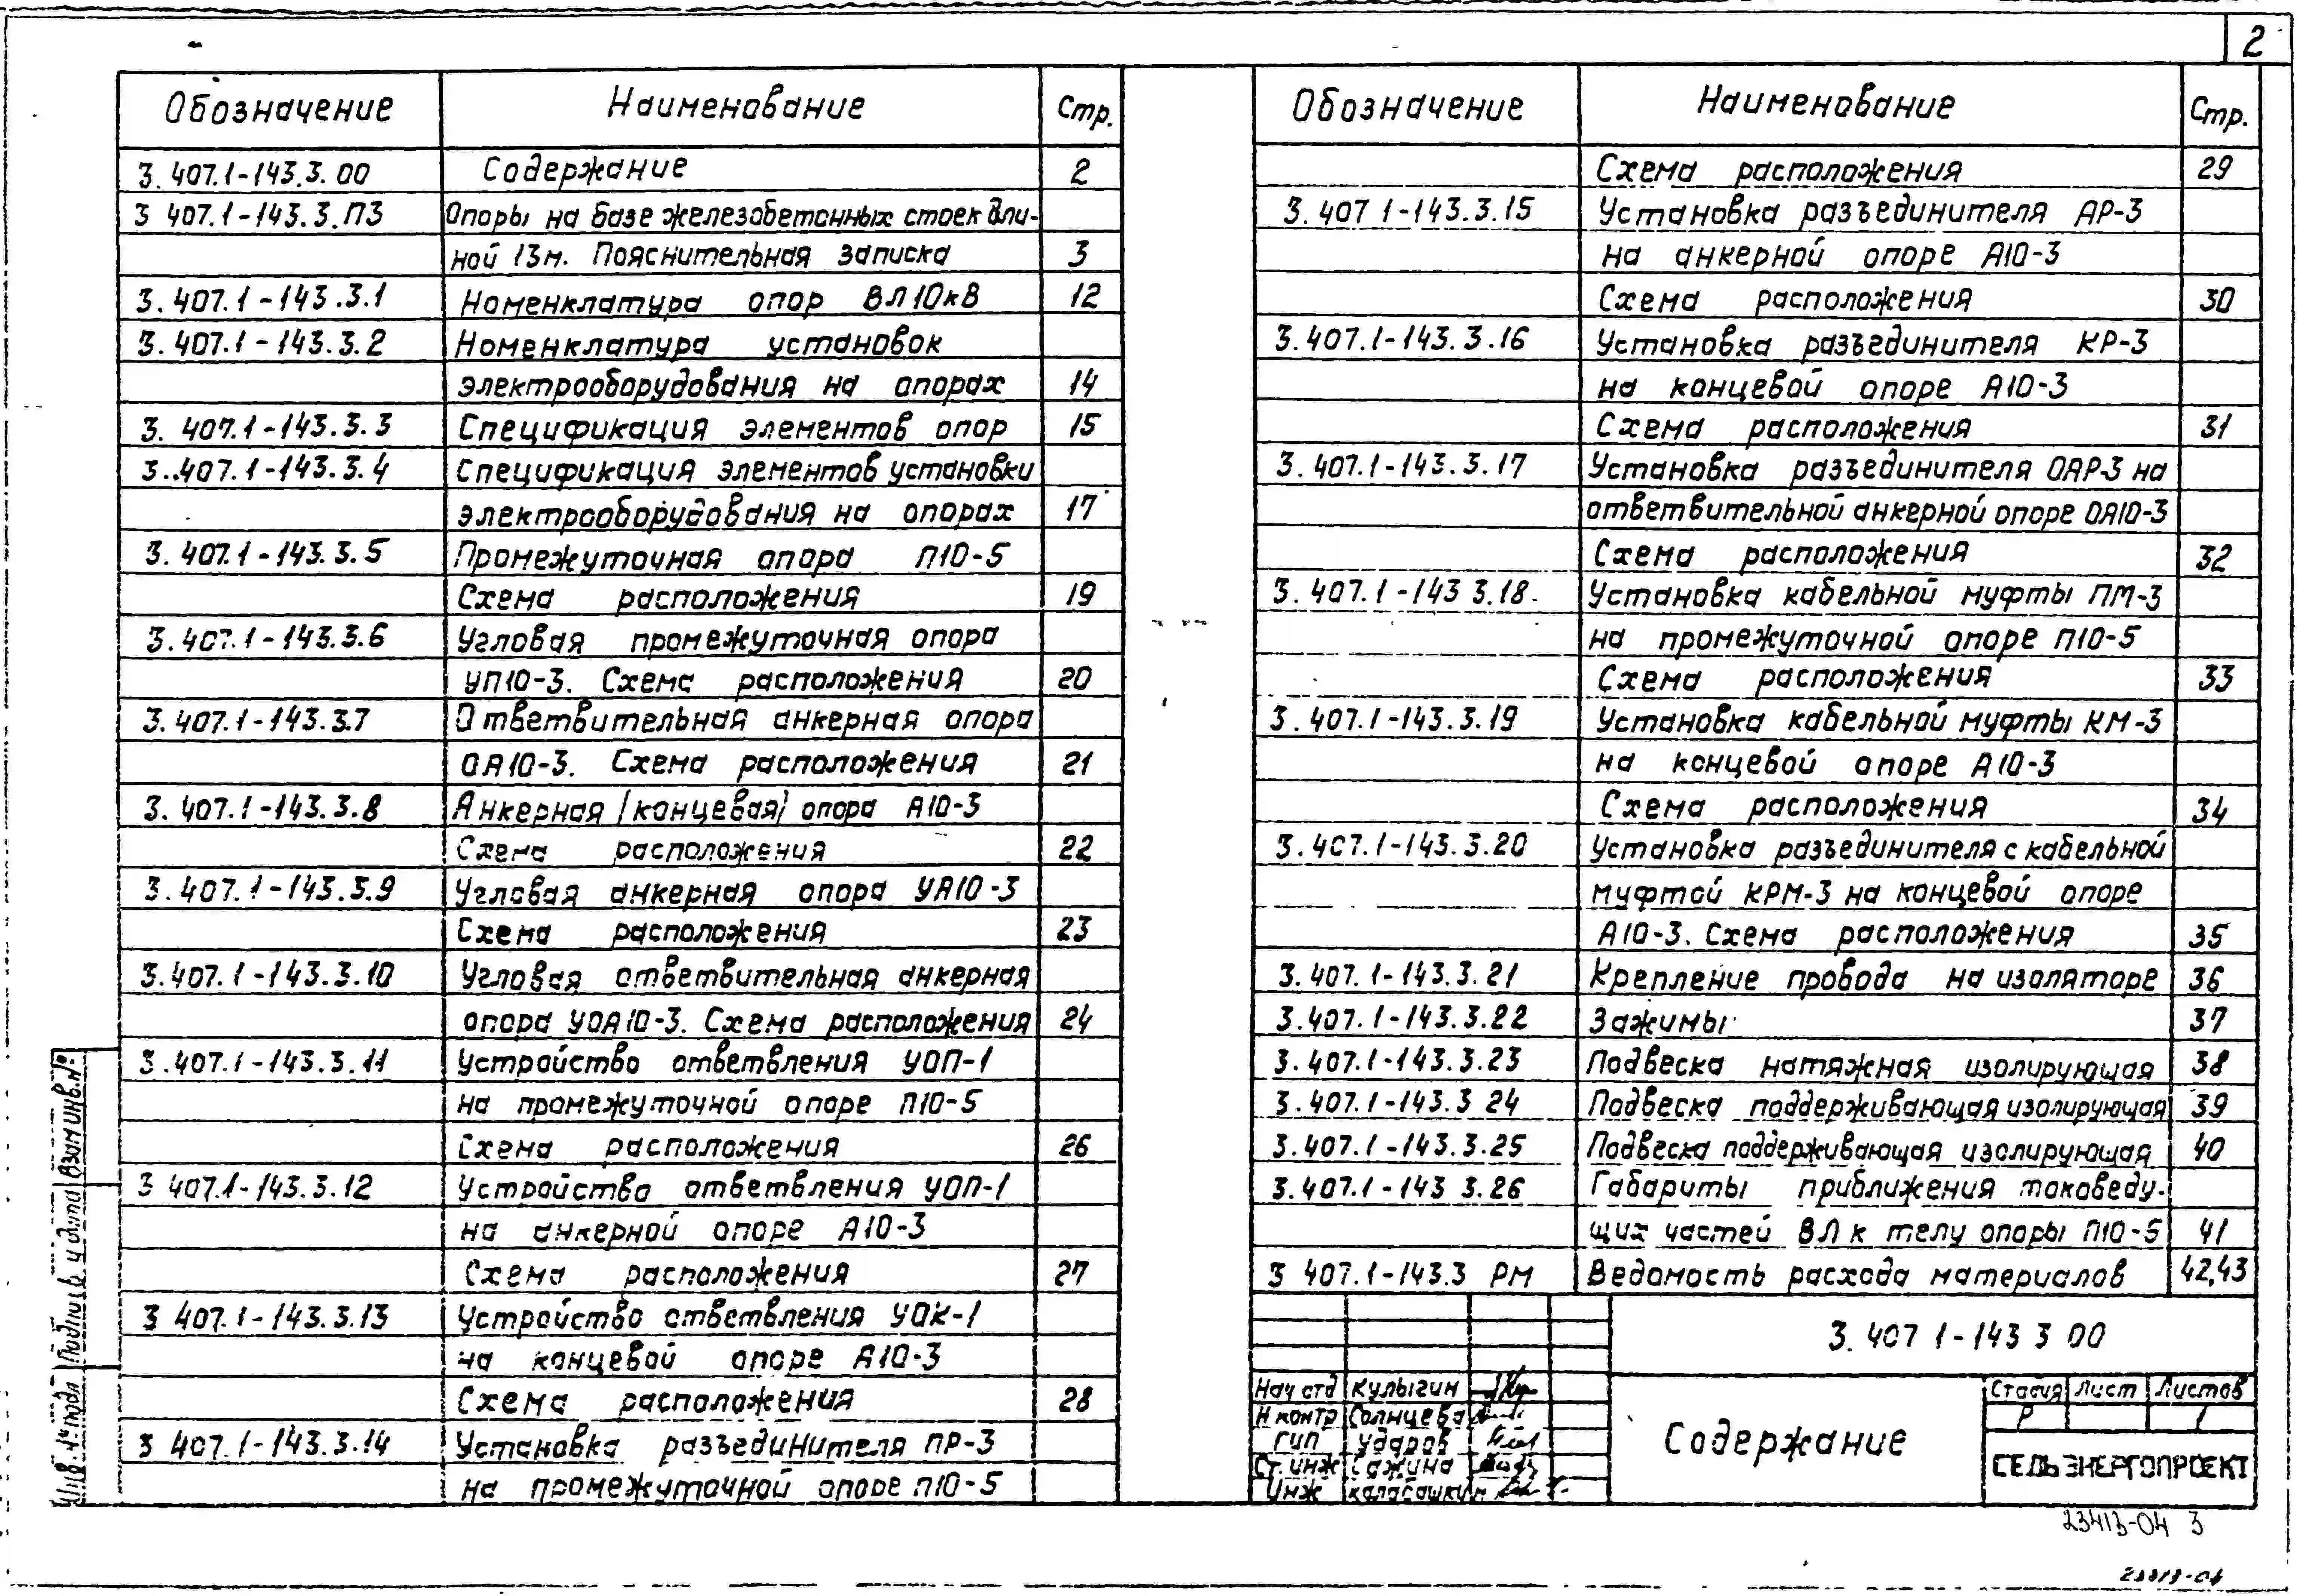 2
Обозначение Наименование Стр.
3.407.1-143.3.00 Содержание 2
3 407.1-143.3.ПЗ Опоры на базе железобетонных стоек дли-
ной 13м. Пояснительная записка 3
3.407.1-143.3.1 Номенклатура опор ВЛ10кВ 12
3.407.1-143.3.2 Номенклатура установок
электрооборудования на опорах 14
3.407.1-143.3.3 Спецификация элементов опор 15
3..407.1-143.3.4 Спецификация элементов установки
электрооборудования на опорах 17
3.407.1-143.3.5 Промежуточная опора П10-5
Схема расположения 19
3.407.1-143.3.6 Угловая промежуточная опора
УП10-3. Схема расположения 20
3.407.1-143.3.7 Ответвительная анкерная опора
ОА10-3. Схема расположения 21
3.407.1-143.3.8 Анкерная /концевая/ опора А10-3
Схема расположения 22
3.407.1-143.3.9 Угловая анкерная опора УА10-3
Схема расположения 23
3.407.1-143.3.10 Угловая ответвительная анкерная
опора УОА10-3. Схема расположения 24
3.407.1-143.3.11 Устройство ответвления УОП-1
на промежуточной опоре П10-5
Схема расположения 26
3 407.1-143.3.12 Устройство ответвления УОП-1
на анкерной опоре А10-3
Схема расположения 27
3 407.1-143.3.13 Устройство ответвления УОК-1
на концевой опоре А10-3
Схема расположения 28
3 407.1-143.3.14 Установка разъединителя ПР-3
на промежуточной опоре П10-5
Обозначение Наименование Стр.
Схема расположения 29
3.407 1-143.3.15 Установка разъединителя АР-3
на анкерной опоре А10-3
Схема расположения 30
3.407.1-143.3.16 Установка разъединителя КР-3
на концевой опоре А10-3
Схема расположения 31
3.407.1-143.3.17 Установка разъединителя ОАР-3 на
ответвительной анкерной опоре ОА10-3
Схема расположения 32
3.407.1-143 3.18 Установка кабельной муфты ПМ-3
на промежуточной опоре П10-5
Схема расположения 33
3.407.1-143.3.19 Установка кабельной муфты КМ-3
на концевой опоре А10-3
Схема расположения 34
3.407.1-143.3.20 Установка разъединителя с кабельной
муфтой КРМ-3 на концевой опоре
А10-3. Схема расположения 35
3.407.1-143.3.21 Крепление провода на изоляторе 36
3.407.1-143.3.22 Зажимы 37
3.407.1-143.3.23 Подвеска натяжная изолирующая 38
3.407.1-143.3 24 Подвеска поддерживающая изолирующая 39
3.407.1-143.3.25 Подвеска поддерживающая изолирующая 40
3.407.1-143 3.26 Габариты приближения токоведу-
щих частей ВЛ к телу опоры П10-5 41
3 407.1-143.3 РМ Ведомость расхода материалов 42,43
3.407 1-143 3 00
Нач отд Кулыгин
Н контр Солнцева
ГИП Ударов
Ст. инж Сажина
Инж Калабашкин
Содержание
Стадия Лист Листов
Р 1
СЕЛЬЭНЕРГОПРОЕКТ
Инв. № подл Подпись и дата Взам инв. №
23413-04 3